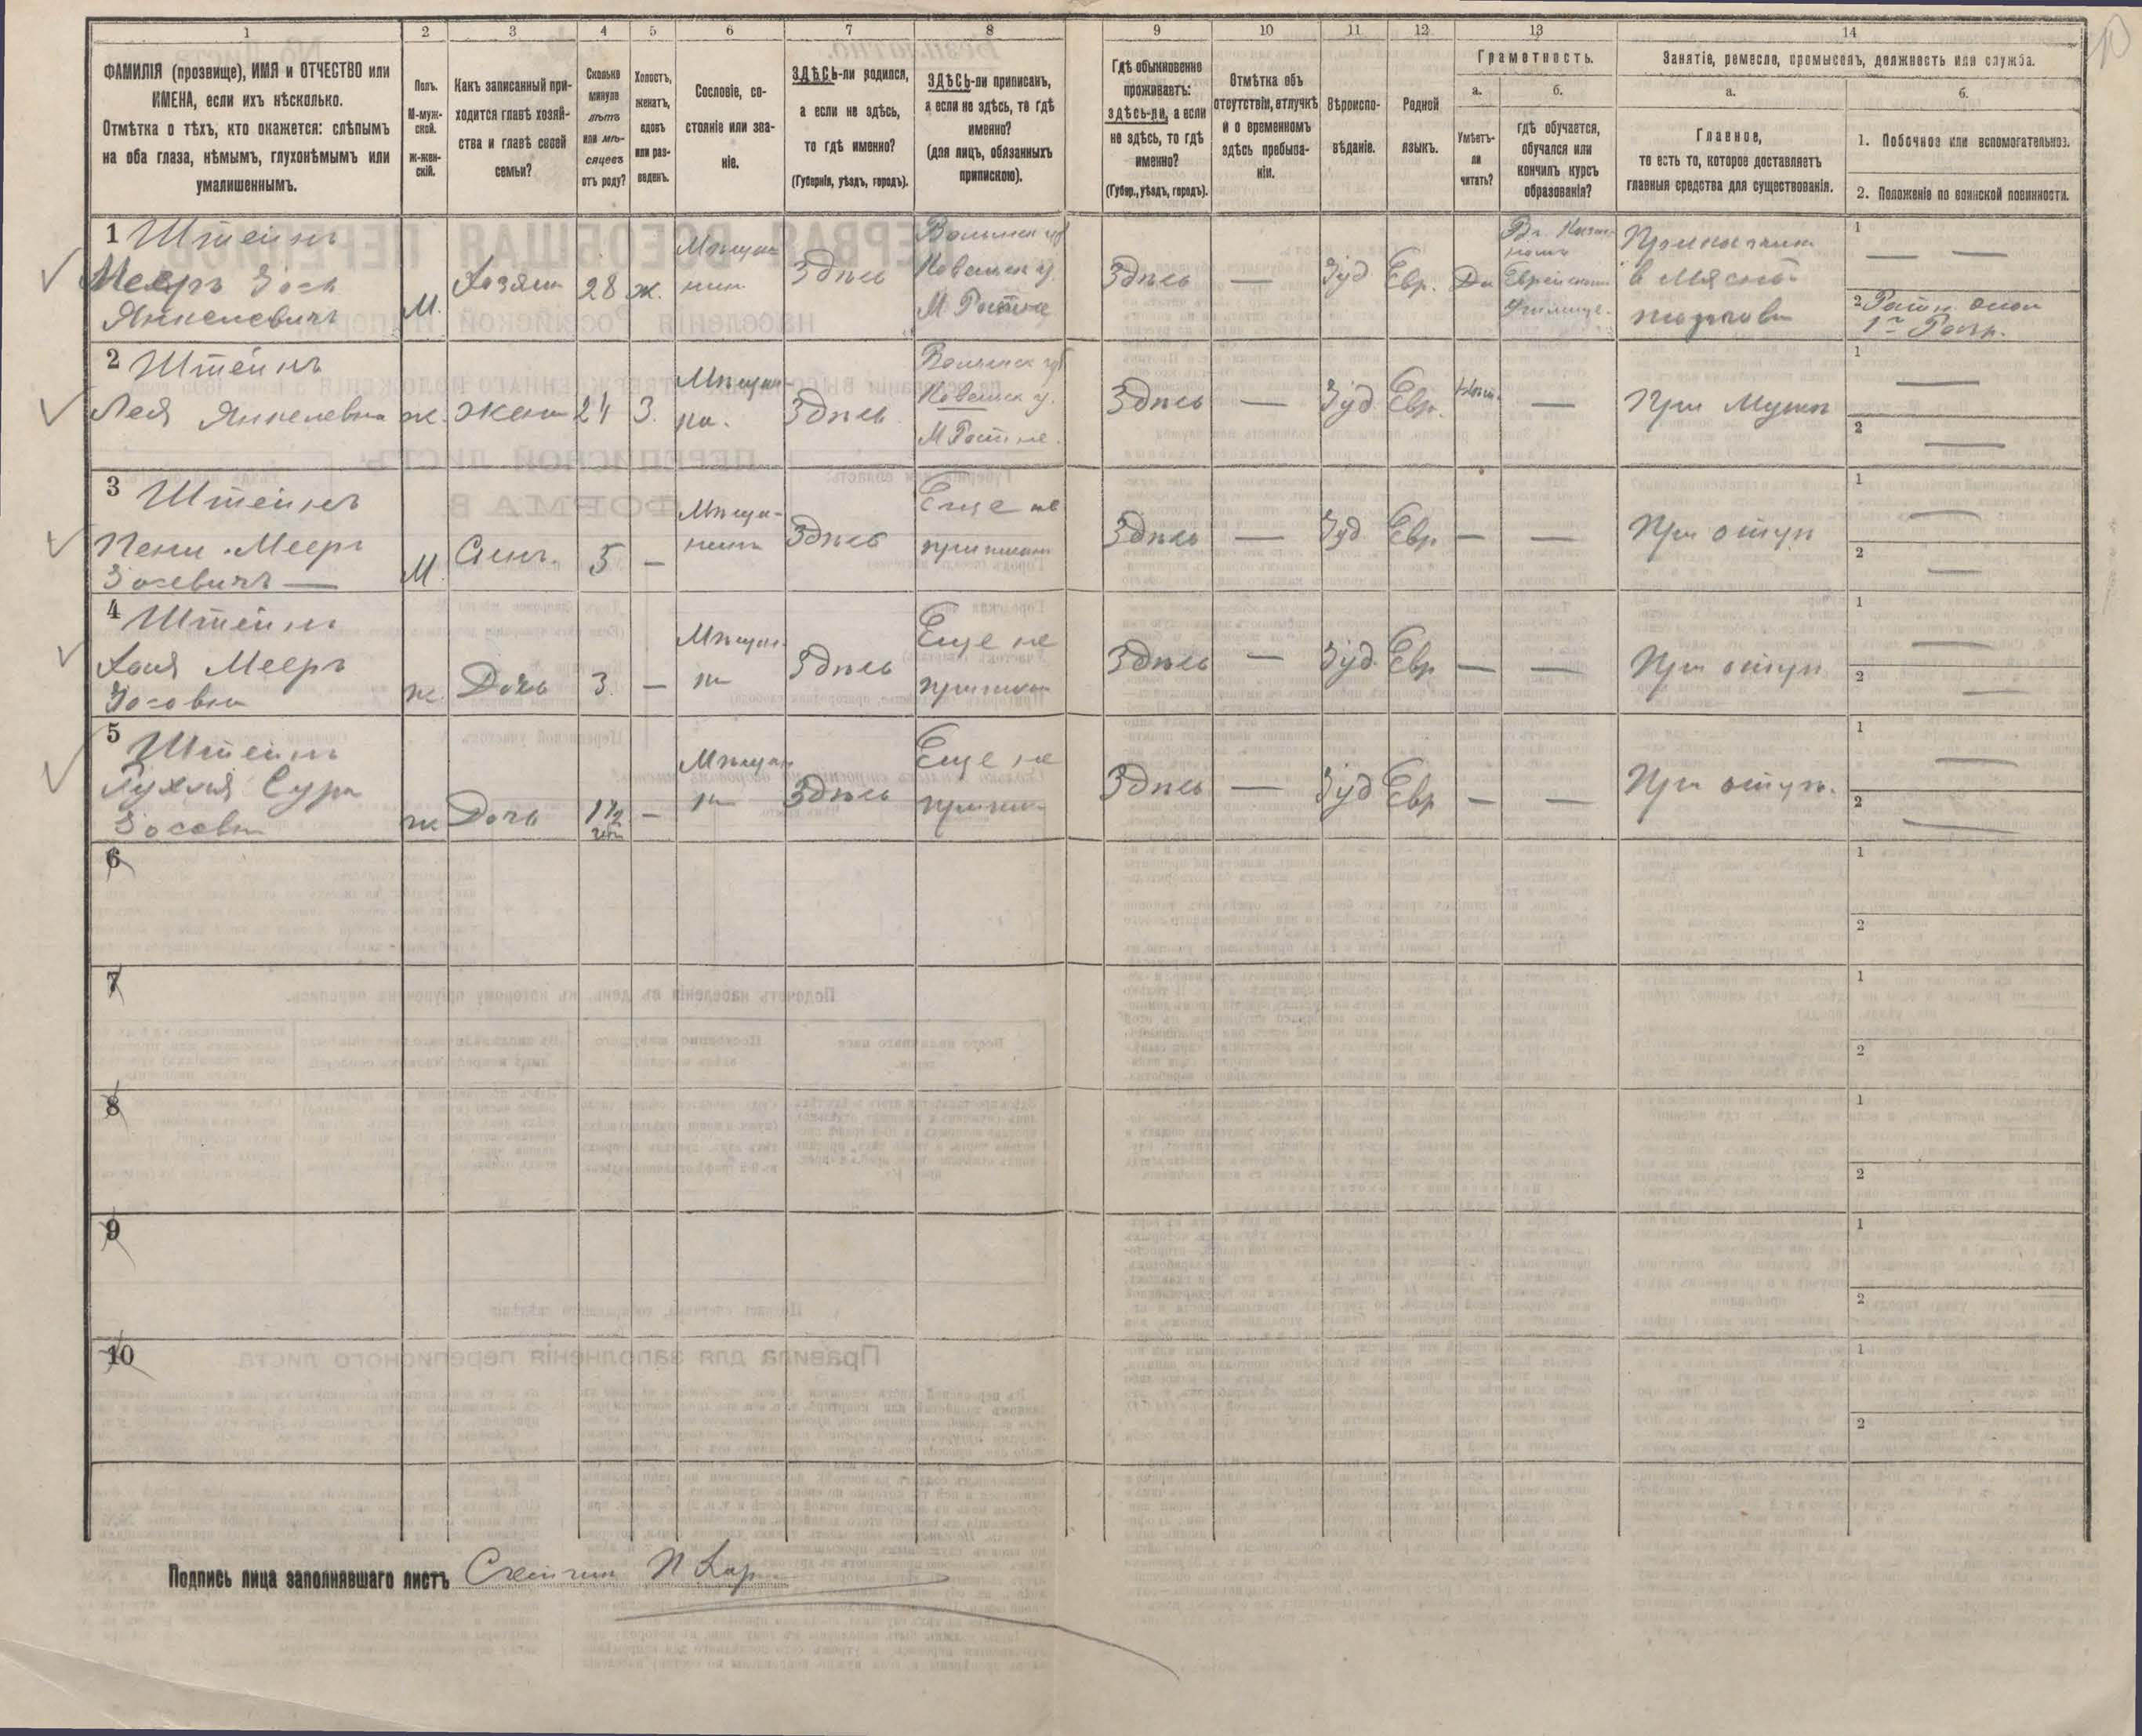 1 2 3 4 5 6 7 8 9 10 11 12 13 14
ФАМИЛІЯ (прозвище), ИМЯ и ОТЧЕСТВО или
ИМЕНА, если ихъ нѣсколько.
Отмѣтка о тѣхъ, кто окажется: слѣпымъ
на оба глаза, нѣмымъ, глухонѣмымъ или
умалишеннымъ.
Полъ.
М-муж-
ской.
Ж-жен-
скій.
Какъ записанный при-
ходится главѣ хозяй-
ства и главѣ своей
семьи?
Сколько
минуло
лѣтъ
или мѣ-
сяцевъ
отъ роду?
Холостъ,
женатъ,
вдовъ
или раз-
веденъ.
Сословіе, со-
стояніе или зва-
ніе.
ЗДѢСЬ-ли родился,
а если не здѣсь,
то гдѣ именно?
(Губернія, уѣздъ, городъ).
ЗДѢСЬ-ли приписанъ,
а если не здѣсь, то гдѣ
именно?
(для лицъ, обязанныхъ
припискою).
Гдѣ обыкновенно
проживаетъ:
здѣсь-ли, а если
не здѣсь, то гдѣ
именно?
(Губер., уѣздъ, городъ).
Отмѣтка объ
отсутствіи, отлучкѣ
и о временномъ
здѣсь пребыва-
ніи.
Вѣроиспо-
вѣданіе.
Родной
языкъ.
Грамотность.
а.
Умѣетъ-
ли
читать?
б.
гдѣ обучается,
обучался или
кончилъ курсъ
образованія?
Занятіе, ремесло, промыселъ, должность или служба.
а.
Главное,
то есть то, которое доставляетъ
главныя средства для существованія.
б.
1. Побочное или вспомогательное.
2. Положеніе по воинской повинности.
1 Штейнъ
Мееръ Зось
Янкелевичъ
М.
Хозяин
28
ж.
Мѣщан
нин
Здѣсь
Волынск губ
Ковельск у.
М Ратно
Здѣсь
—
Іуд
Евр.
Да
Еврейском
Училище.
Прикащик
в Мясной
торговле
1 — —
2 Ратн опол
1го Разр.
2 Штейнъ
Лея Янкелевна
ж.
жена
24
З.
Мѣщан-
ка.
Здѣсь
Волынск губ
Ковельск у.
М Ратно.
Здѣсь
—
Іуд
Евр.
Нет.
—
При Мужѣ
1 —
2 —
3 Штейнъ
Мееръ
Зосевичъ —
М
Сынъ.
5
—
Мѣща-
нинъ
Здѣсь
Еще не
приписан
Здѣсь
—
Іуд
Евр
—
—
При отцѣ
1 —
2 —
4 Штейнъ
Хая Мееръ
Зосовна
ж.
Дочь
3.
—
Мѣщан.
ка
Здѣсь
Еще не
приписан
Здѣсь
—
Іуд
Евр
—
—
При отцѣ
1 —
2 —
5 Штейнъ
Рухля Сура
Зосовна
ж
Дочь
1 1/2
—
Мѣщан
ка
Здѣсь
Еще не
припис
Здѣсь
—
Іуд
Евр
—
—
При отцѣ.
1 —
2 —
6
1
2
7
1
2
8
1
2
9
1
2
10
1
2
Подпись лица заполнявшаго листъ Счетчик